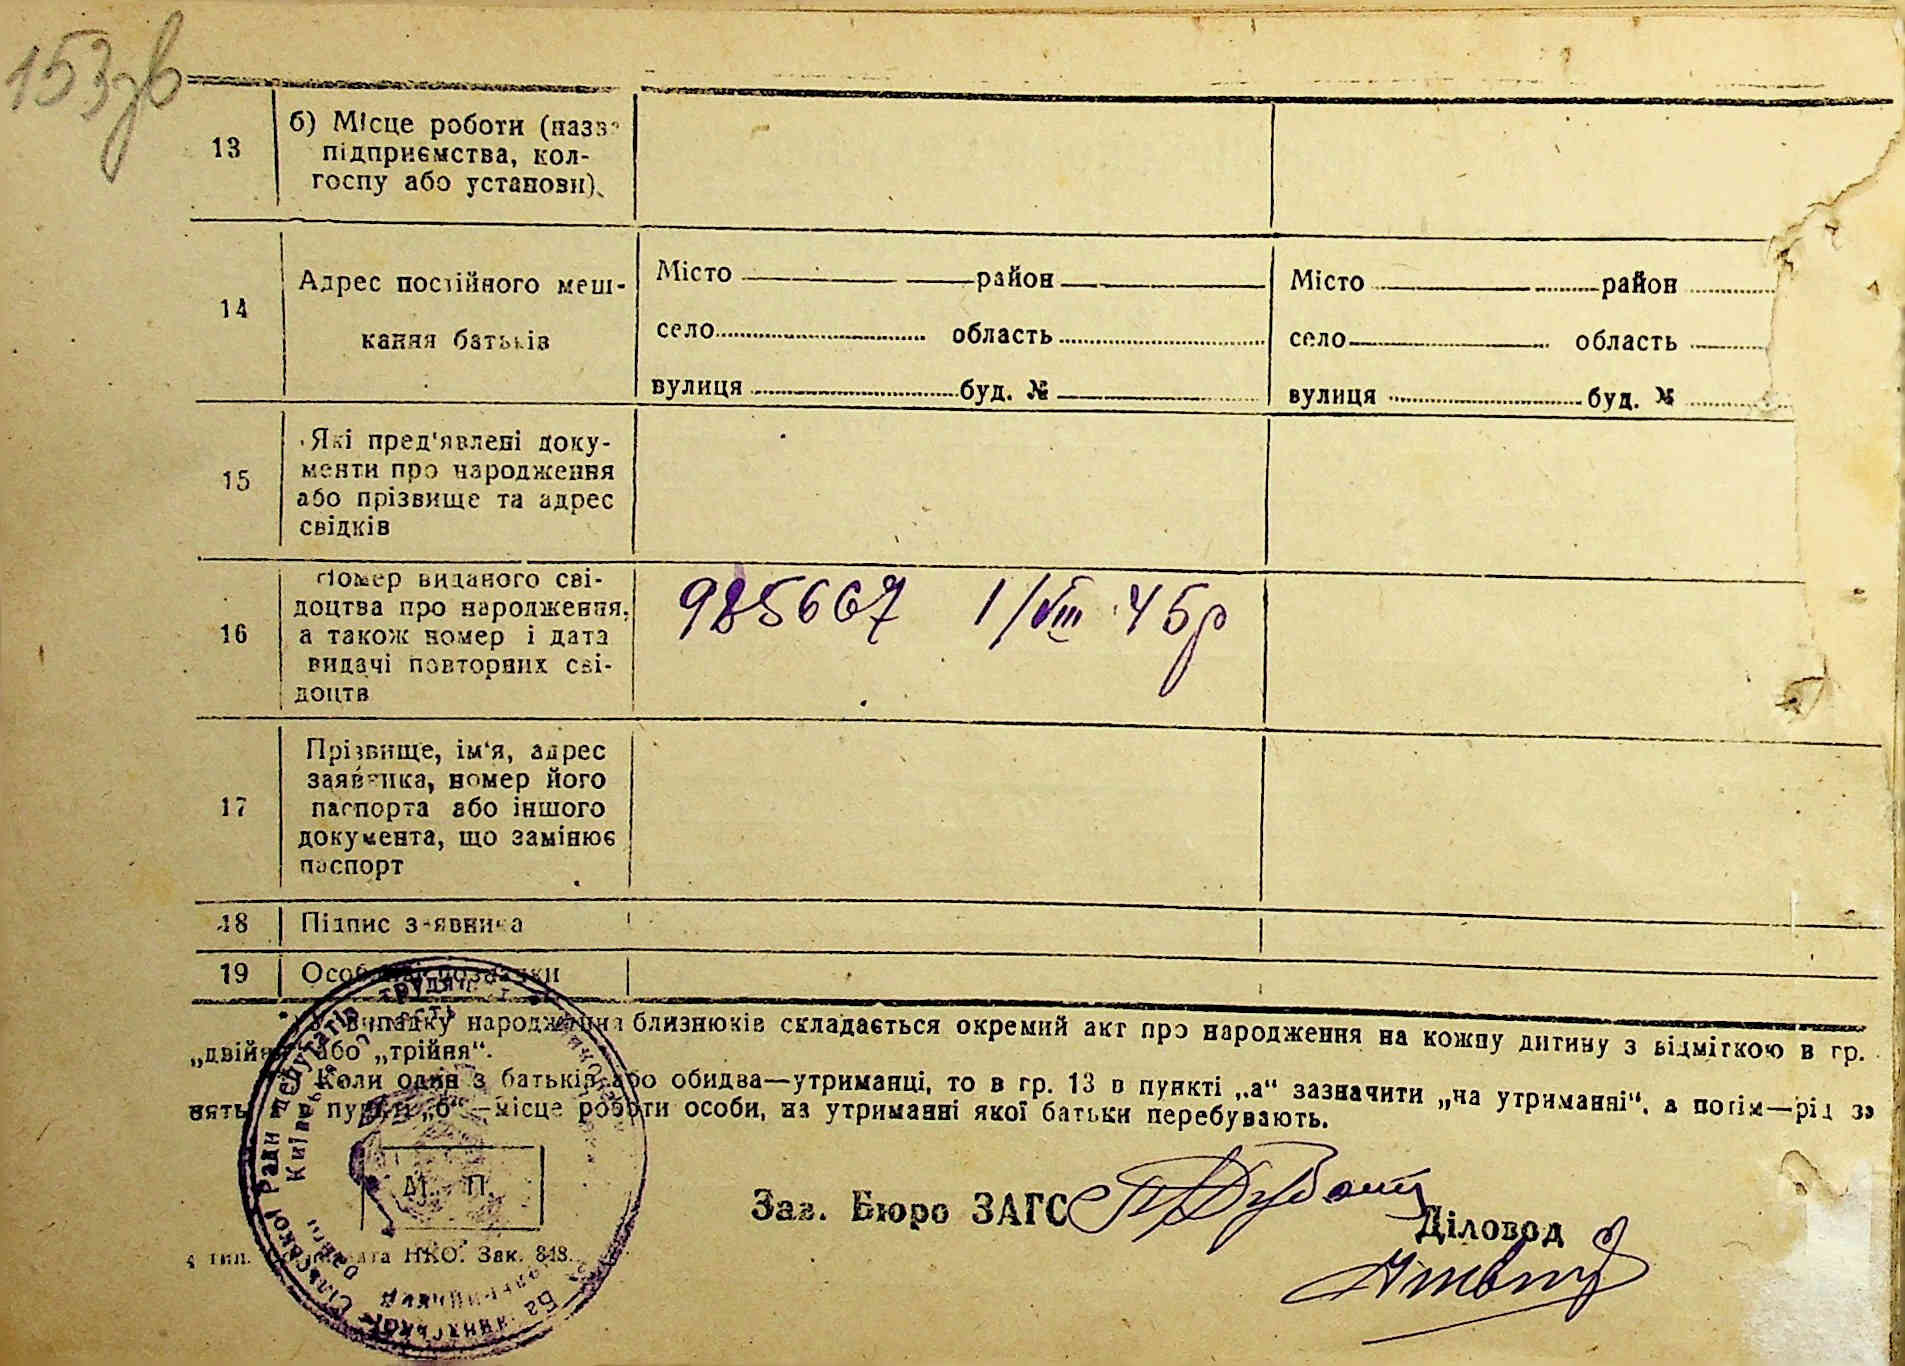 153зв
13
б) Місце роботи (назва
підприємства, кол-
госпу або установи)
14
Адрес постійного меш-
кання батьків
Місто район
село область
вулиця буд. №
Місто район
село область
вулиця буд. №
15
Які пред'явлені доку-
менти про народження
або прізвище та адрес
свідків
16
Номер виданого сві-
доцтва про народження,
а також номер і дата
видачі повторних сві-
доцтв
985667 1/VIII 45р
17
Прізвище, ім'я, адрес
заявника, номер його
паспорта або іншого
документа, що замінює
паспорт
18
Підпис заявника
19
Особливі позначки
*) У випадку народження близнюків складається окремий акт про народження на кожну дитину з відміткою в гр.
„двійня“ або „трійня“.
Коли один з батьків або обидва—утриманці, то в гр. 13 в пункті „а“ зазначити „на утриманні“, а потім—рід за
нять, а в пункті „б“—місце роботи особи, на утриманні якої батьки перебувають.
М. П.
Зав. Бюро ЗАГС
Діловод
тип. НКО. Зак. 848.
Сільської Ради депутатів трудящих
Київської області